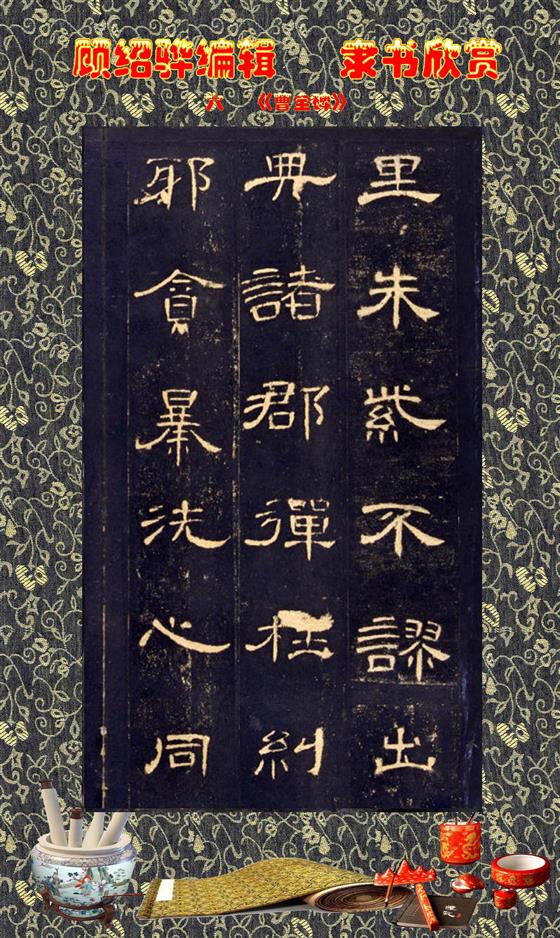 顾绍骅编辑 隶书欣赏
六 《曹全碑》
里朱紫不謬出
典諸郡彈枉糾
邪貪暴洗心同